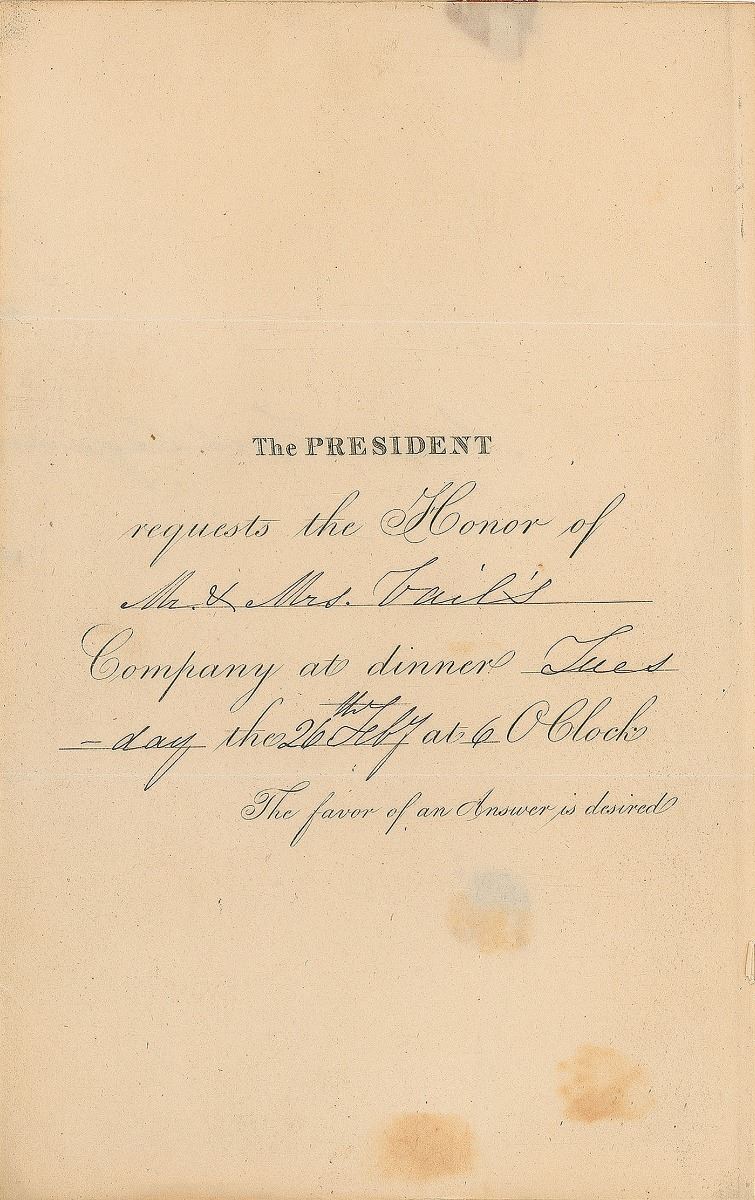 The PRESIDENT
requests the Honor of
Mr. & Mrs. Vail's
Company at dinner Tues
- day the 26th Feby at 6 O'Clock
The favor of an Answer is desired